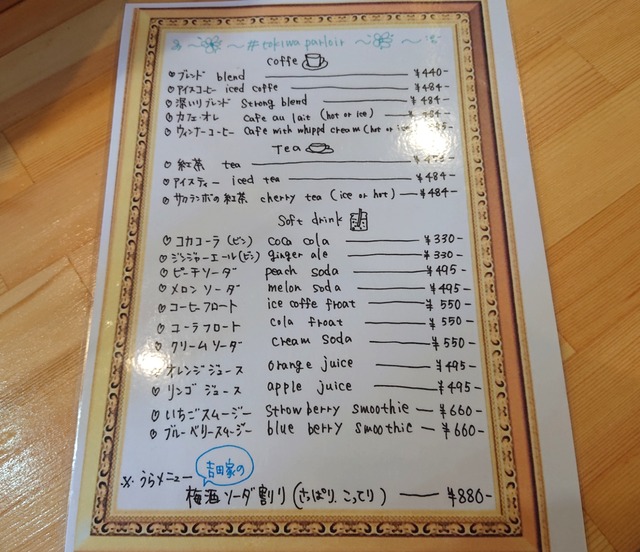 #tokiwa parloir
coffe
ブレンド blend ¥440-
アイスコーヒー iced coffe ¥484-
深いりブレンド Strong blend ¥484-
カフェ・オレ Cafe au lait (hot or ice) ¥484-
ウィンナーコーヒー Cafe with whippd cream (hot or ice)
Tea
紅茶 tea
アイスティー iced tea ¥484-
サクランボの紅茶 cherry tea (ice or hot) ¥484-
Soft drink
コカコーラ (ビン) coca cola ¥330-
ジンジャーエール(ビン) ginger ale ¥330-
ピーチソーダ peach soda ¥495-
メロンソーダ melon soda ¥495-
コーヒーフロート ice coffe froat ¥550
コーラフロート cola froat ¥550
クリームソーダ cream soda ¥550
オレンジジュース orange juice ¥495-
リンゴジュース apple juice ¥495-
いちごスムージー strowberry smoothie ¥660-
ブルーベリースムージー blue berry smoothie ¥660-
※うらメニュー 吉田家の
梅酒ソーダ割り (さっぱり、こってり) ¥880-